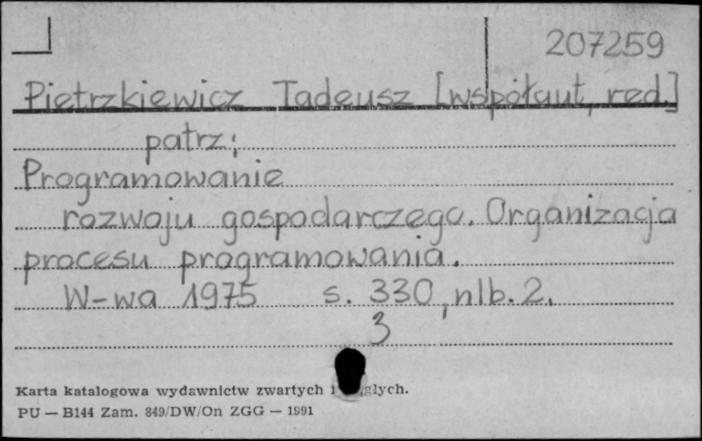 207259
Pietrzkiewicz Tadeusz [współaut, red.]
patrz:
Programowanie
rozwoju gospodarczego. Organizacja
procesu programowania.
W-wa 1975 s. 330, nlb. 2.
3
Karta katalogowa wydawnictw zwartych i
PU — B144 Zam. 849/DW/On ZGG — 1991